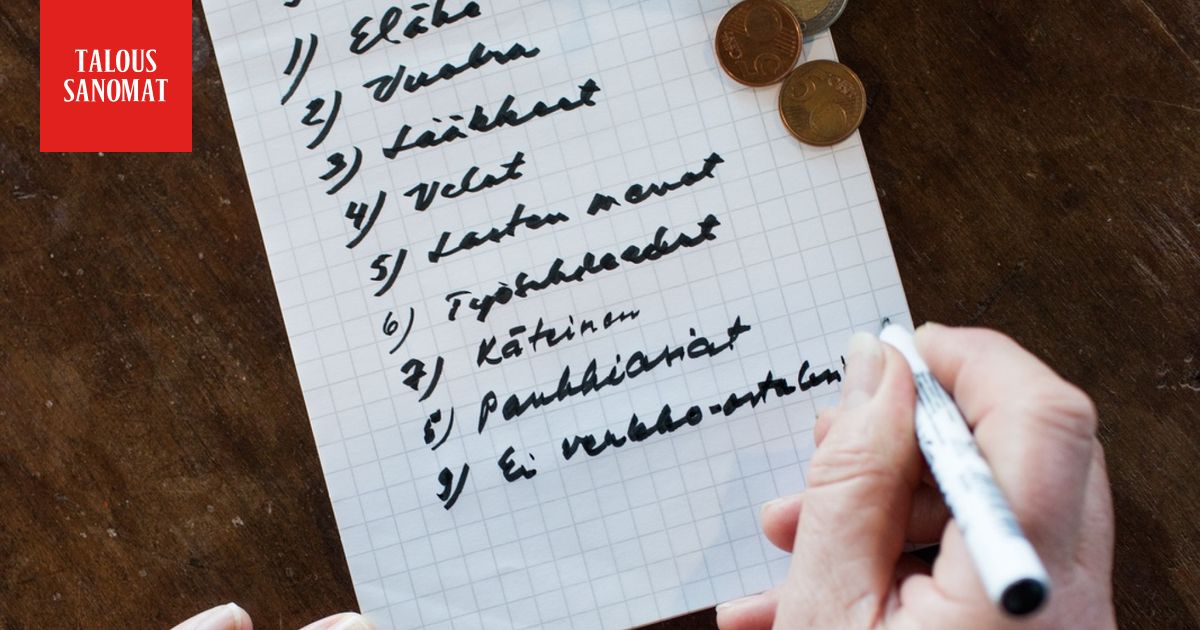 TALOUS
SANOMAT
1) Eläke
2) Vuokra
3) Lääkkeet
4) Velat
5) Lasten menot
6)
7) Käteinen
8) Pankkiasiat
9) Ei verkko-ostoksi